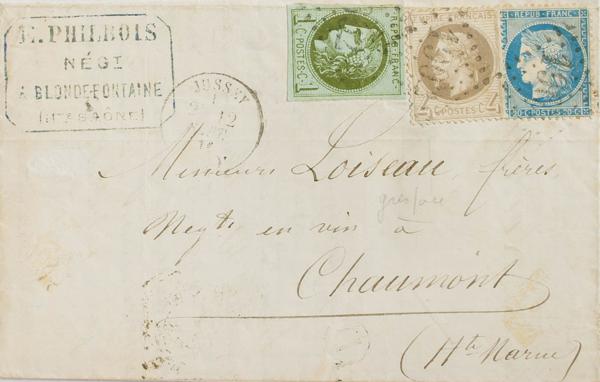 PHILBOIS
NÉGT
A BLONDEFONTAINE
(Hte SAÔNE)
JUSSEY
12
1 C. POSTES 1
REPUB. FRANC.
REPUB. FRANC.
20 C. POSTES 20 C.
Messieurs Loiseau, frères,
Negts en vin à
Chaumont
(Hte Marne)